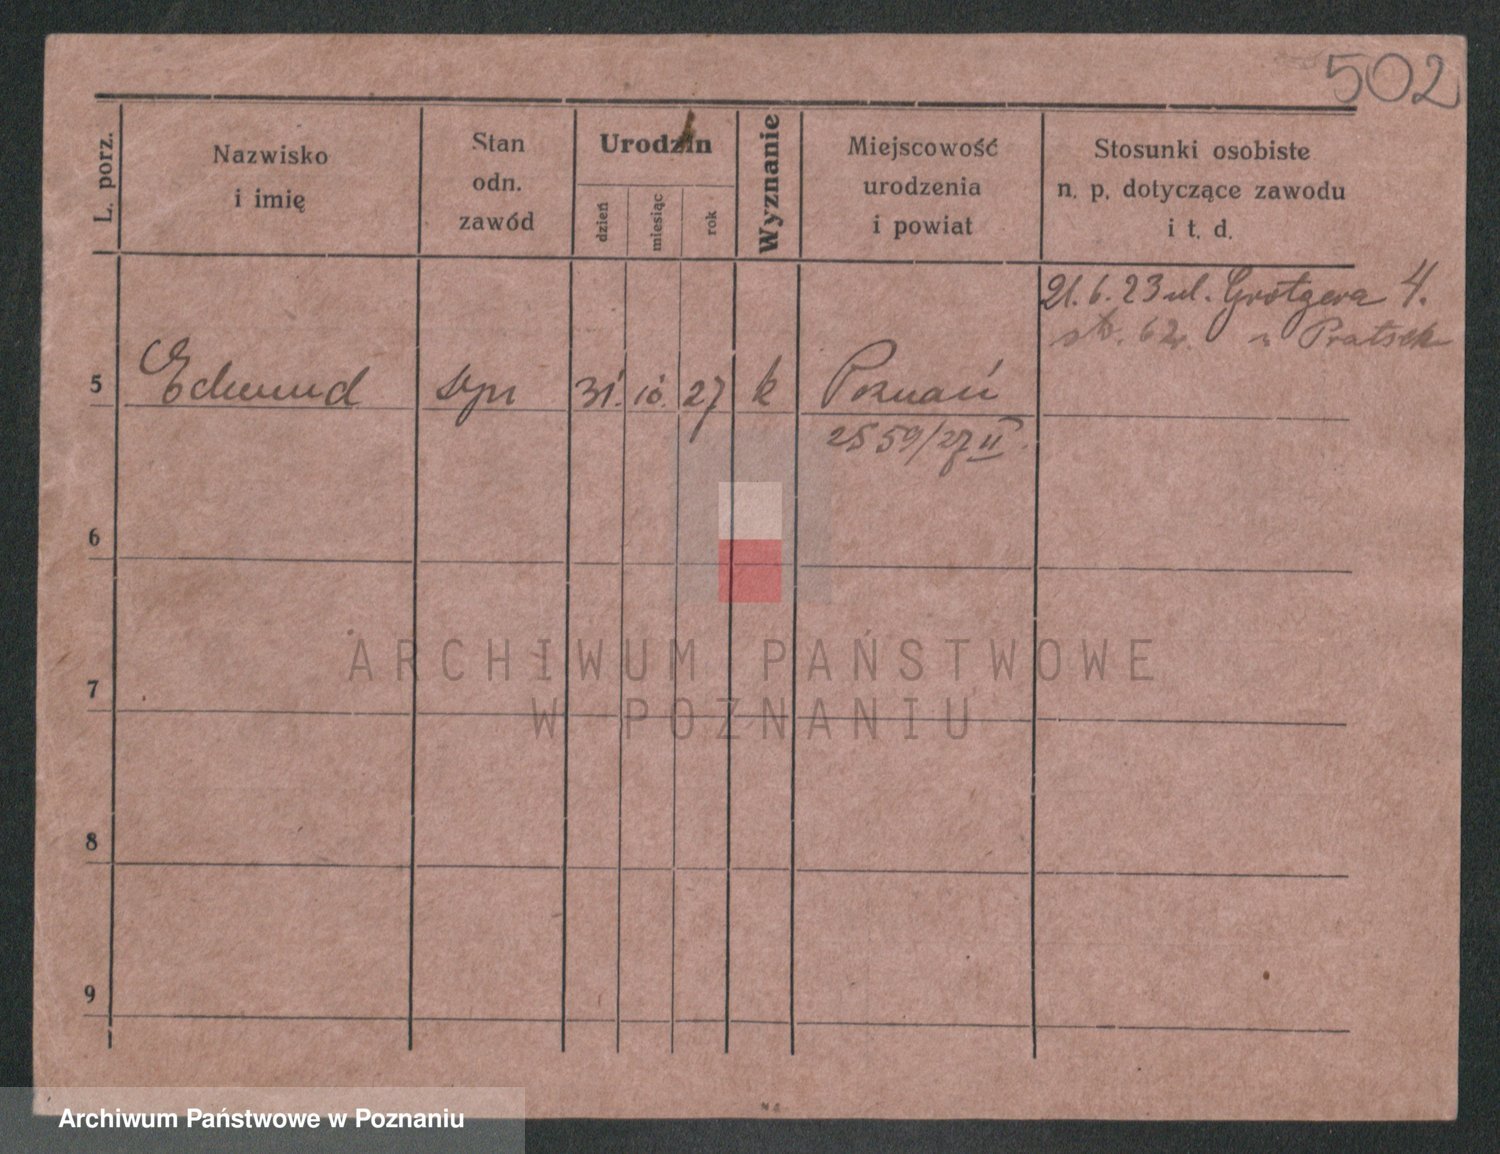 502
L. porz.
Nazwisko
i imię
Stan
odn.
zawód
Urodzin
dzień
miesiąc
rok
Wyznanie
Miejscowość
urodzenia
i powiat
Stosunki osobiste
n. p. dotyczące zawodu
i t. d.
21. 6. 23 ul. Grotgera 4.
u Pratsek
5 Edmund syn 31. 10. 27 k Poznań
2559/27 II
6
7
8
9
ARCHIWUM PAŃSTWOWE
W POZNANIU
Archiwum Państwowe w Poznaniu